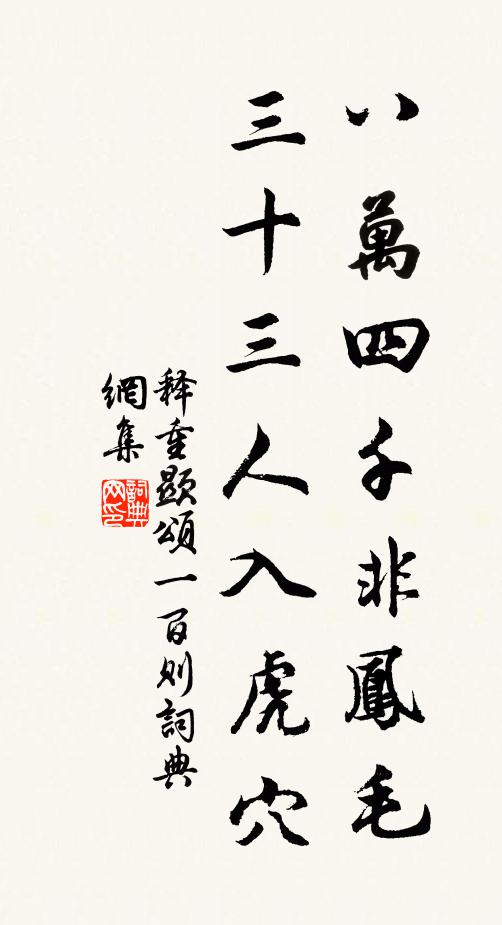 八萬四千非鳳毛
三十三人入虎穴
释重顯頌一百则詞典
網集
詞典网印